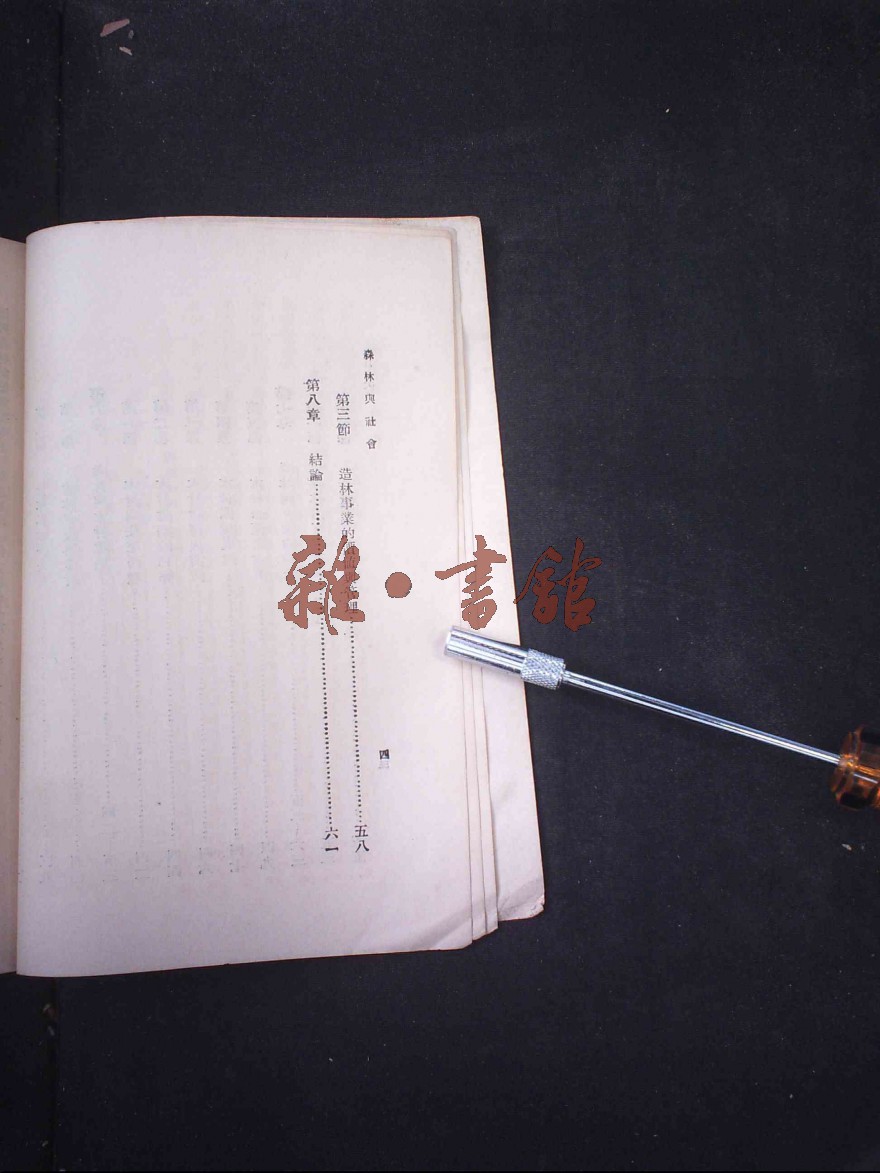 森林與社會
四
第三節 造林事業的 理……五八
第八章 結論……六一
雜·書館